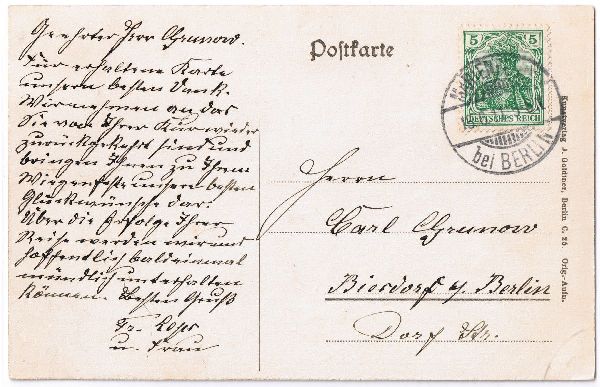 Geehrter Herr Grunow.
Für erhaltene Karte
unsern besten Dank.
Wir nehmen an das
Sie von Ihrer Kur wieder
zurückgekehrt sind und
bringen Ihnen zu Ihrem
Wiegenfeste unsere besten
Glückwünsche dar.
Über die Erfolge Ihrer
Reise werden wir uns
hoffentlich bald einmal
mündlich unterhalten
können. Besten Gruß
Fr.
u. Frau
Postkarte
5 5
DEUTSCHES REICH
bei BERLIN
Herrn
Carl Grunow
Biesdorf b. Berlin
Dorf Str.
Kunstverlag J. Goldiner, Berlin C. 25 Orig.-Aufn.